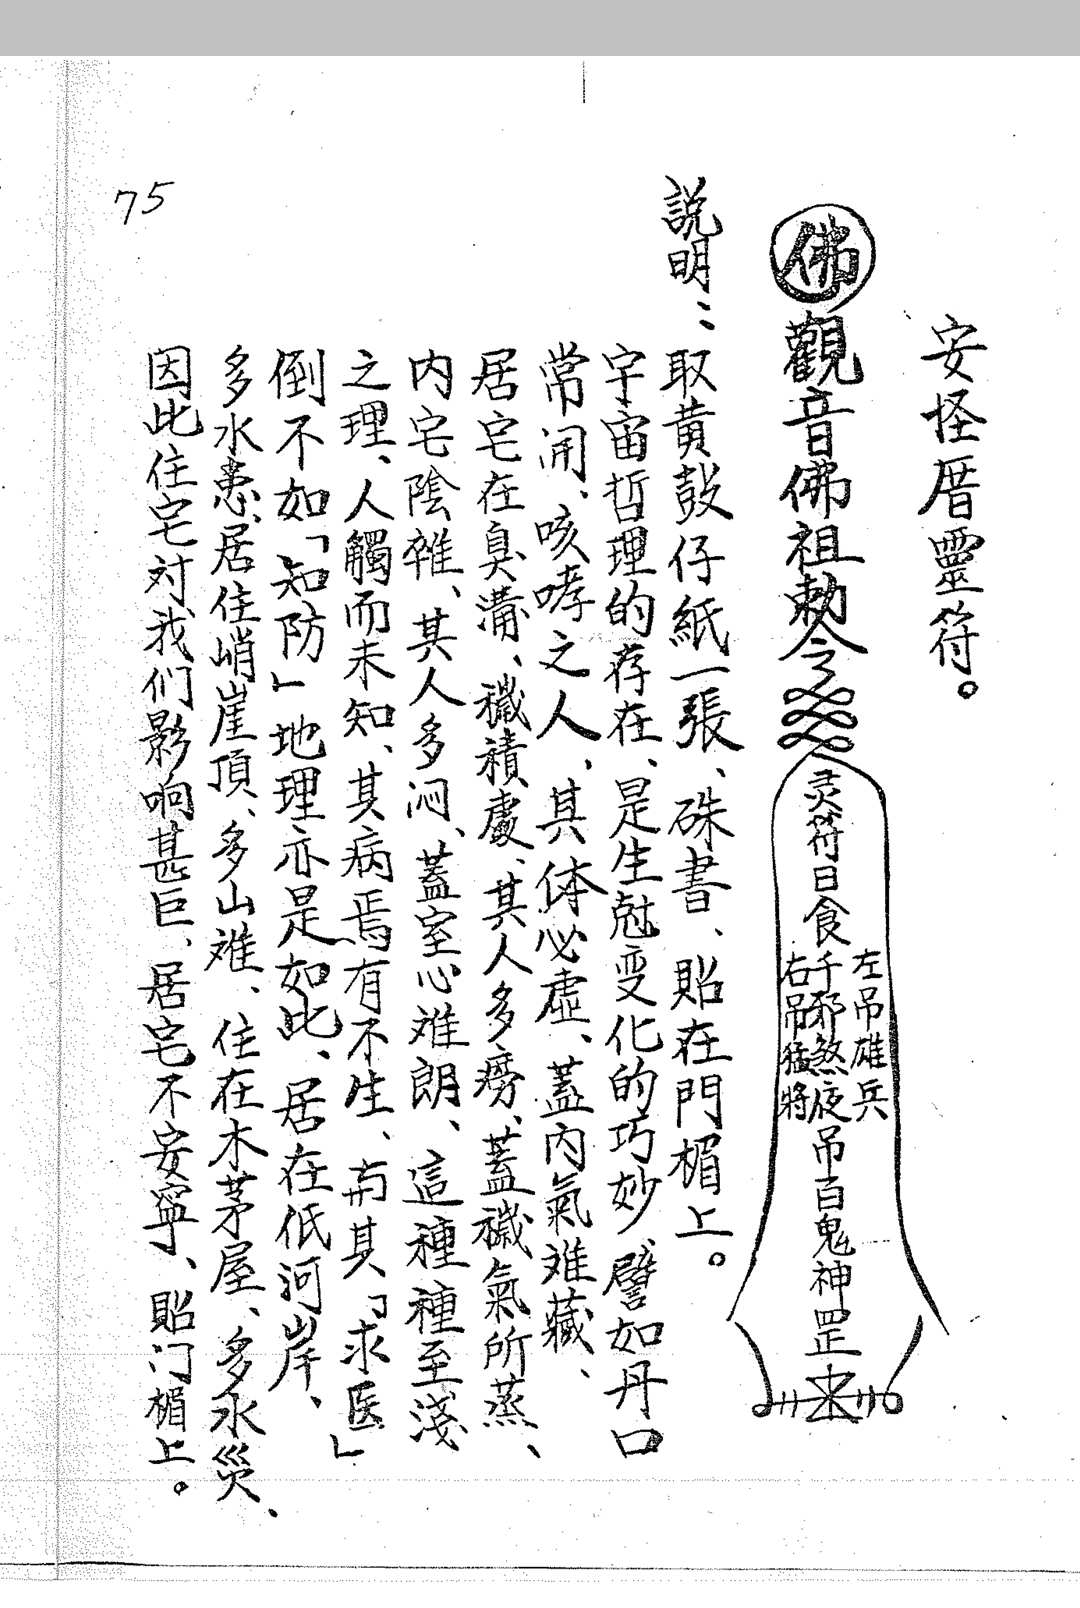 安怪厝靈符。
佛觀音佛祖勅令
灵符日食千邪煞夜吊百鬼神罡
左吊雄兵
右吊猛將
説明：取黄鼓仔紙一張、硃書、貼在門楣上。
宇宙哲理的存在、是生尅変化的巧妙、譬如丹口
常開、咳哮之人、其体必虛、蓋内氣难藏、
居宅在臭溝、穢積處、其人多癆、蓋穢氣所蒸、
内宅陰雜、其人多闷、蓋室心难朗、這種種至淺
之理、人觸而未知、其病焉有不生、其「求医」
倒不如「知防」地理亦是如此、居在低河岸、
多水患、居住峭崖頂、多山难、住在木茅屋、多永災、
因此住宅対我们影响甚巨、居宅不安寧、貼门楣上。
75